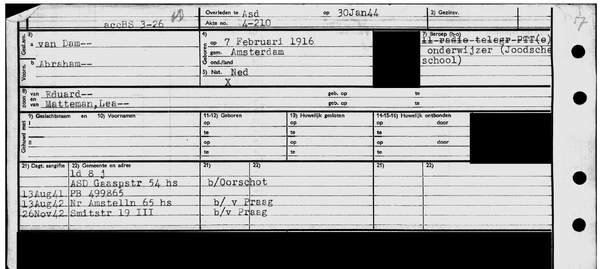 accHS 3-26
Overleden te Asd op 30Jan44
Akte no. 4-210
2) Gezinsv.
3)
Gesl.nm. a van Dam--
Voorn. b Abraham--
4)
Geboren op 7 Februari 1916
gem. Amsterdam
ond./land
5) Nat. Ned
X
7) Beroep (b-o)
11 radio telegr PTT(e)
onderwijzer (Joodsche
school)
zoon v) van Eduard-- geb. op te
en van Matteman,Lea-- geb. op te
9) Geslachtsnaam en 10) Voornamen
11-12) Geboren
13) Huwelijk gesloten
14-15-16) Huwelijk ontbonden
Gehuwd met
I op op op door
te te te
II op op op door
te te te
21) Dagt. aangifte 22) Gemeente en adres 21) 22) 21) 22)
ld 8 j
ASD Gaaspstr 54 hs b/Oorschot
13Aug41 PB 499865
13Aug42 Nr Amstelln 65 hs b/ v Praag
26Nov42 Smitstr 19 III b/v Praag